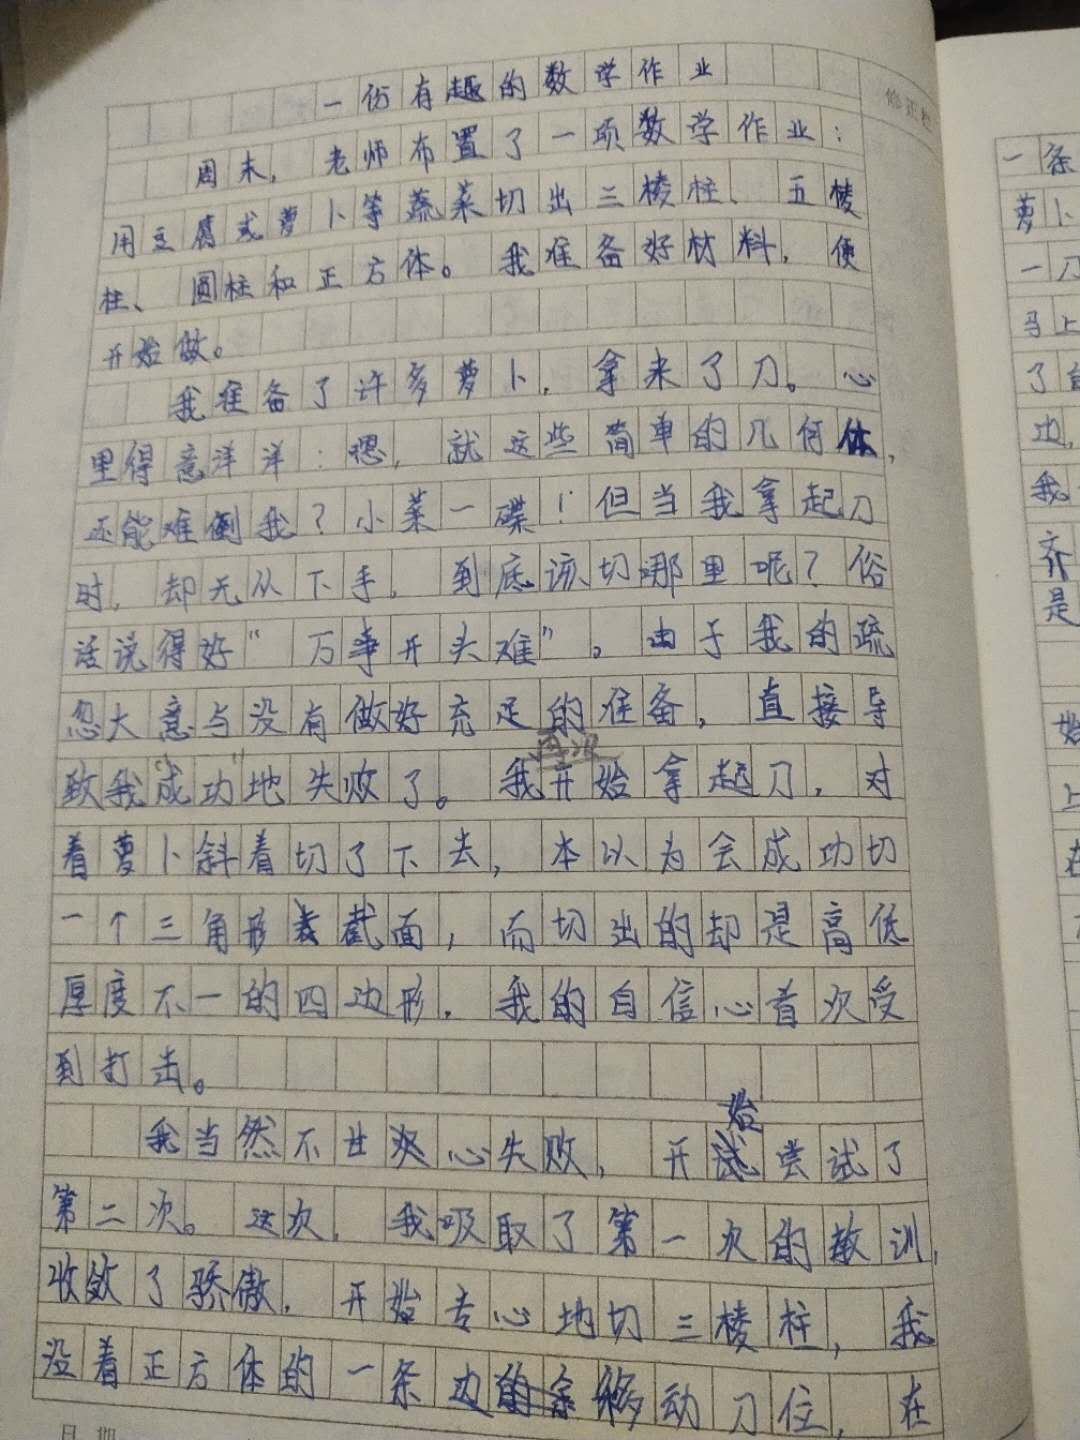 一份有趣的数学作业
修正栏
周末，老师布置了一项数学作业：
用豆腐或萝卜等蔬菜切出三棱柱、五棱
柱、圆柱和正方体。我准备好材料，便
开始做。
我准备了许多萝卜，拿来了刀。心
里得意洋洋：嗯，就这些简单的几何体，
还能难倒我？小菜一碟！但当我拿起刀
时，却无从下手，到底该切哪里呢？俗
话说得好“万事开头难”。由于我的疏
忽大意与没有做好充足的准备，直接导
致我“成功”地失败了。我再次开始拿起刀，对
着萝卜斜着切了下去，本以为会成功切
一个三角形截面，而切出的却是高低
厚度不一的四边形，我的自信心首次受
到打击。
我当然不甘心失败，开始尝试了
第二次。这次，我吸取了第一次的教训，
收敛了骄傲，开始专心地切三棱柱，我
没着正方体的一条边移动刀位，在
日期
一条
萝卜
一刀
马上
了
边，
我
齐
是
始
上
在